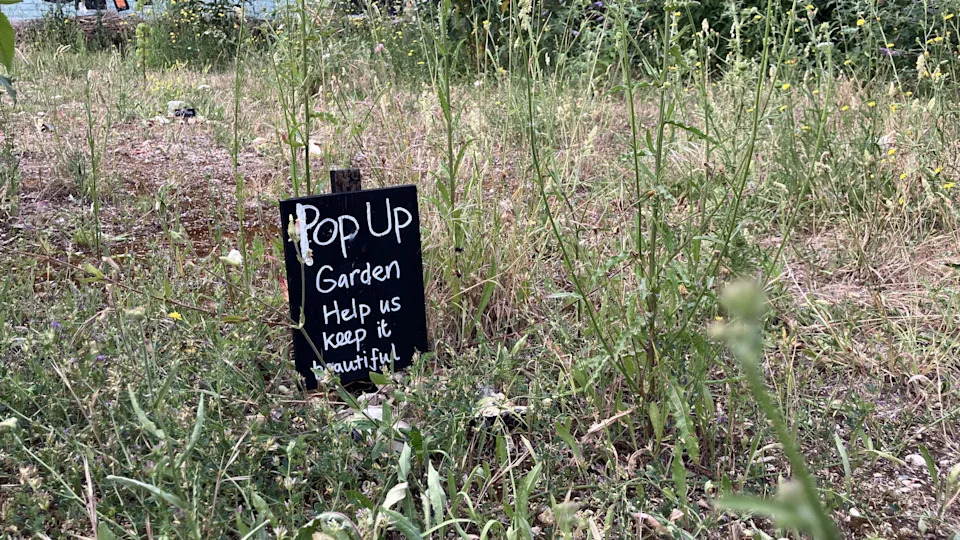 Pop Up
Garden
Help us
keep it
beautiful